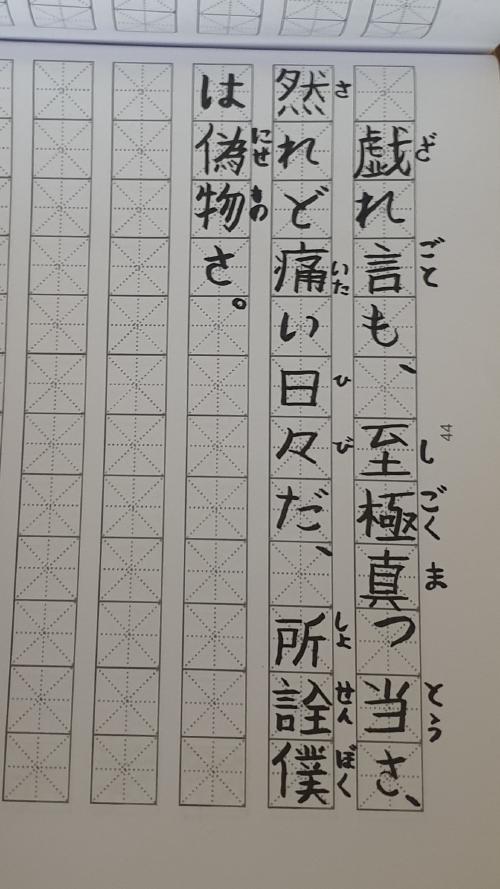 戯れ言も、至極真っ当さ、
然れど痛い日々だ、所詮僕
は偽物さ。
ざ
ごと
し
ごく
ま
とう
さ
いた
ひ
び
しょ
せん
ぼく
にせ
もの
44